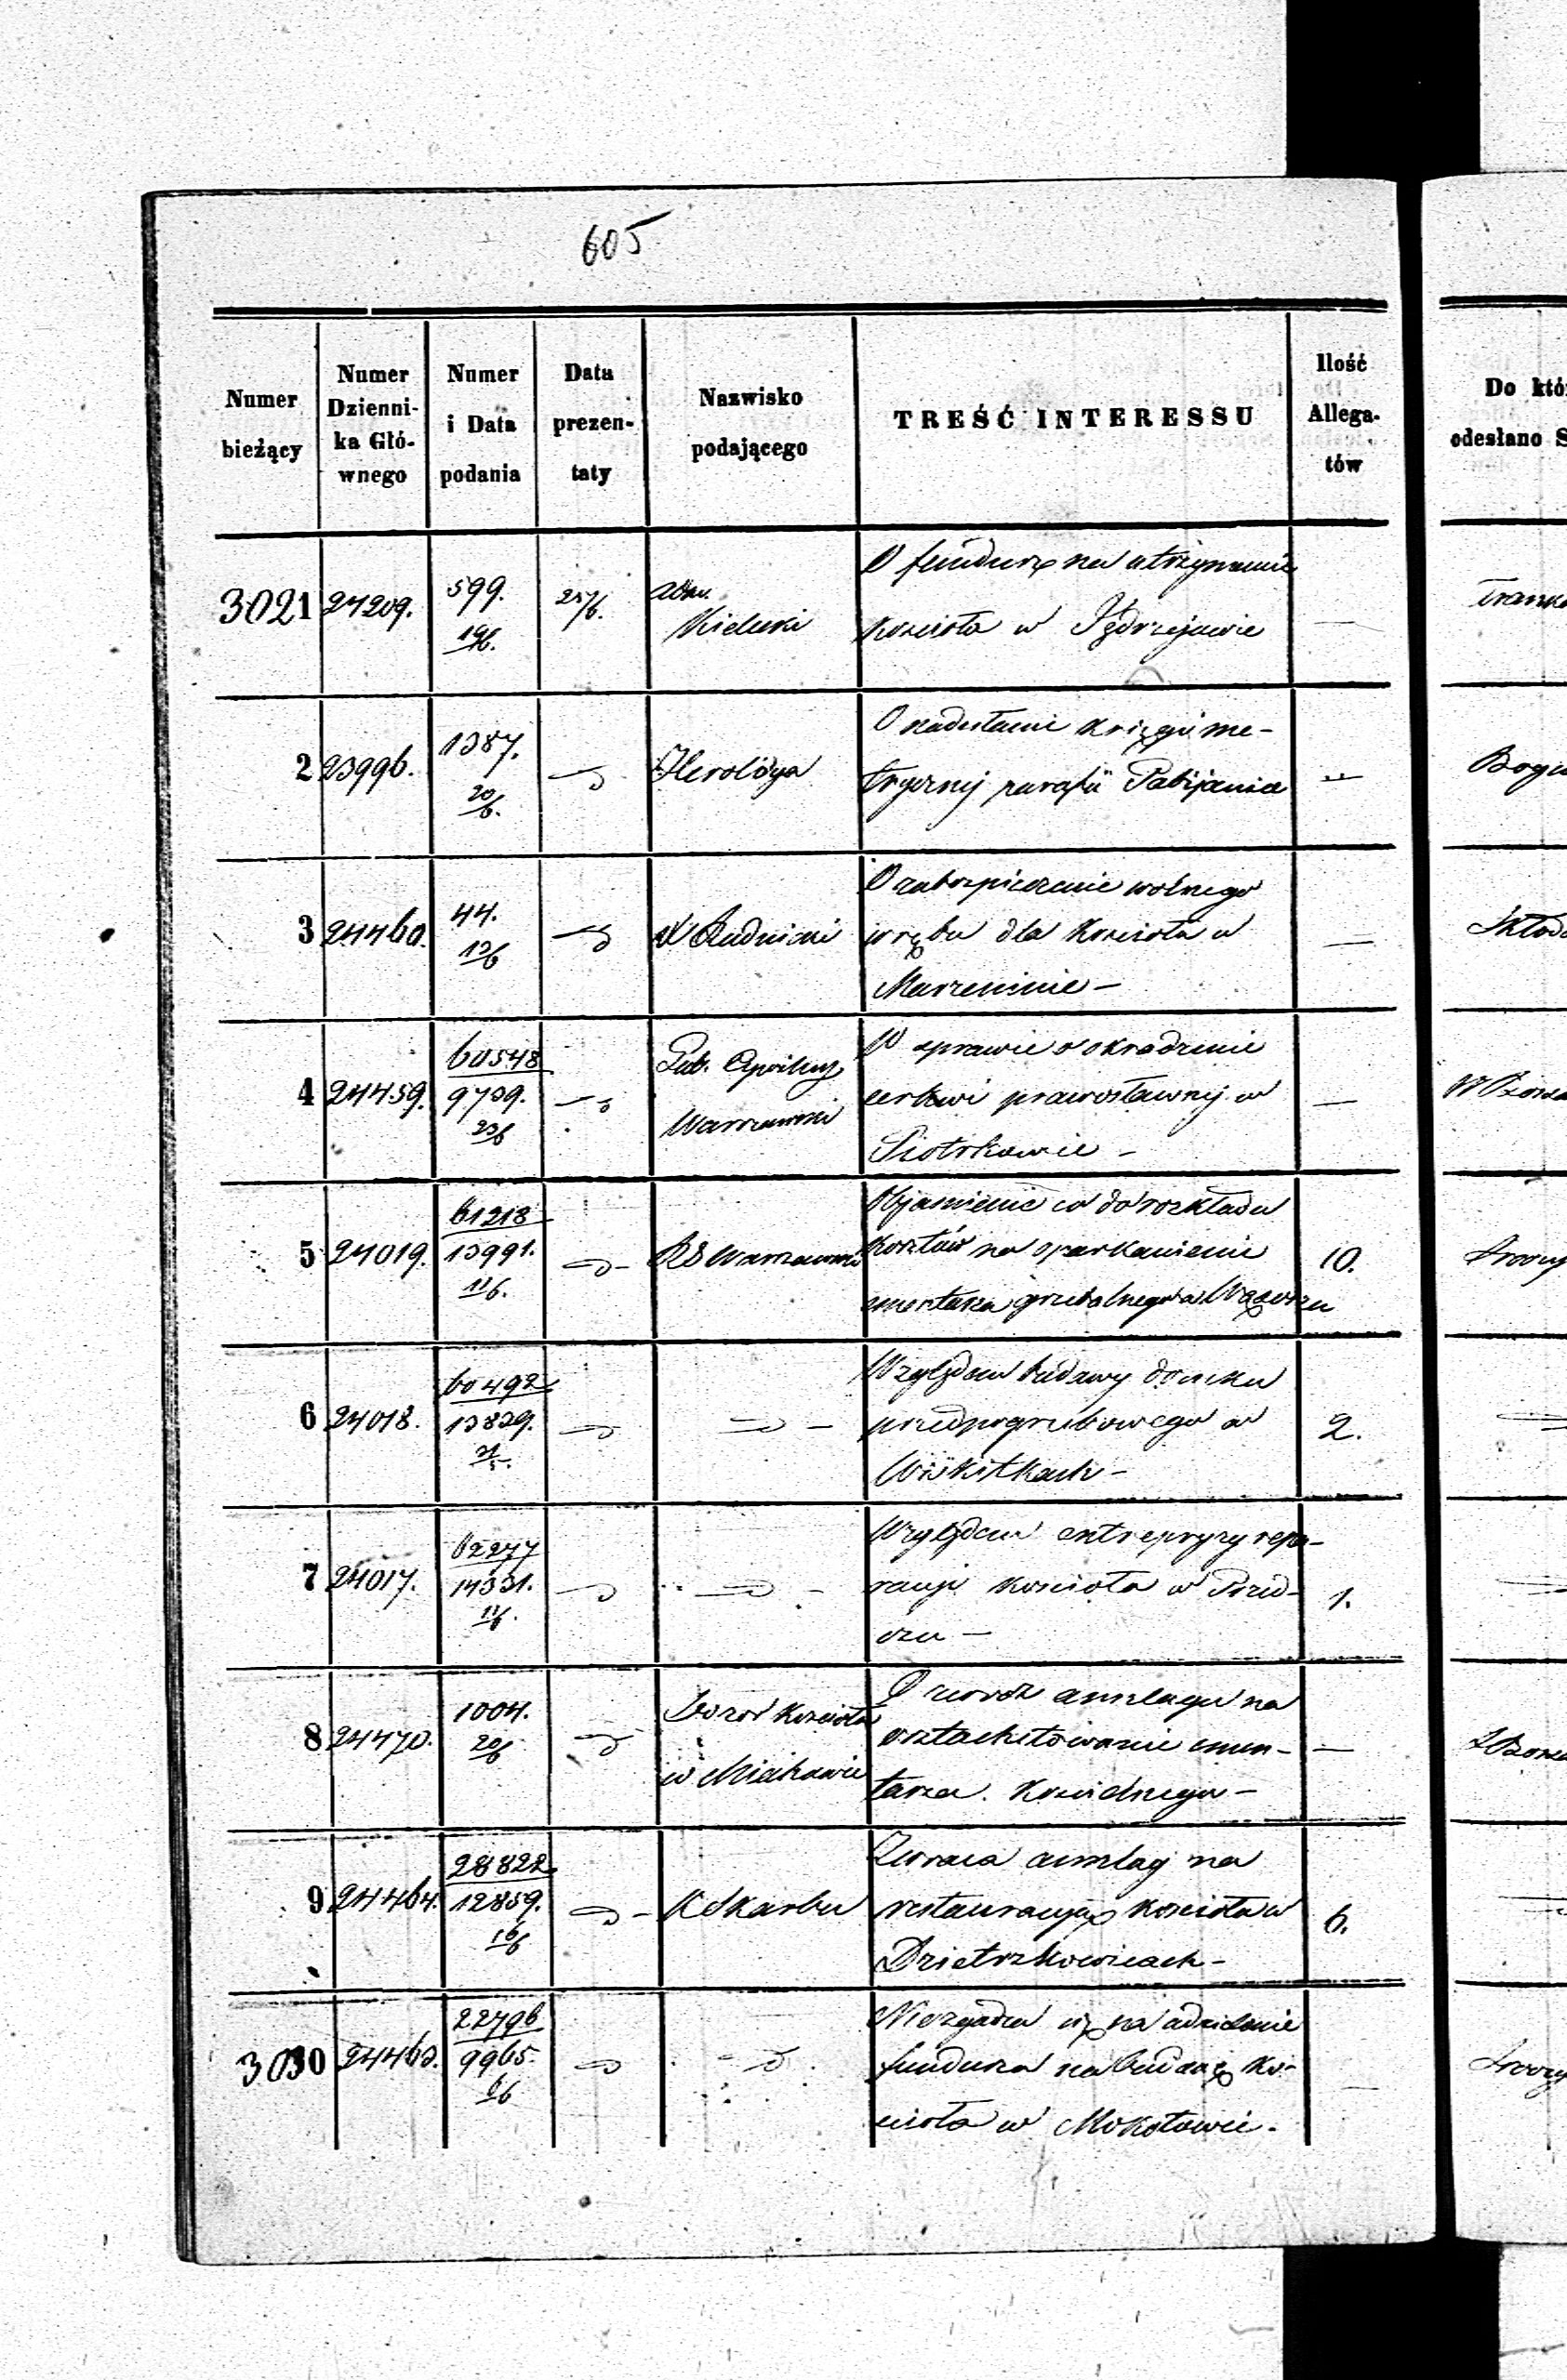 605
Numer bieżący
Numer Dzienni-ka Głó-wnego
Numer i Data podania
Data prezen-taty
Nazwisko podającego
TREŚĆ INTERESSU
Ilość Allega-tów
Do któ
odesłano S
3021 24209. 599. 19/6. 25/6. Adm. Kielecki
O fundusz na utrzymanie
kościoła w Jędrzejowie —
2 23996. 1387. 20/6. Heroldya
O nadesłanie księgi me-
trycznej parafii Pabijanice —
3 24460. 44. 13/6 X Rudnicki
O zabezpieczenie wolnego
wrębu dla kościoła w
Marzeninie —
4 24459. 60548 9739. 23/6 Gub. Cywilny Warszawski
W sprawie o okradzenie
cerkwi prawosławnej w
Piotrkowie —
5 24019. 61218 13991. 11/6. RG Warszawski
Objaśnienie co do rozkładu
kosztów na oparkanienie
cmentarza grzebalnego w
10.
6 24018. 60492 13839.
Względem budowy domku
przedpogrzebowego w
Wiskitkach —
2.
7 24017. 62277 14331. 11/6.
Względem entrepryzy repa-
racyi kościoła w
1.
8 24470. 1004. 20/6 Dozor kościoła
w Miechowie
O zwrot anszlagu na
osztachetowanie cmen-
tarza kościelnego —
9 24464. 28822 12859. 16/6 K Skarbu
Zwraca anszlag na
restauracyją kościoła w
Dzietrzkowicach —
6.
3030 24463. 22796 9965. 6/6
Niezgadza się na udzielenie
funduszu na budowę ko-
ścioła w Mokotowie.